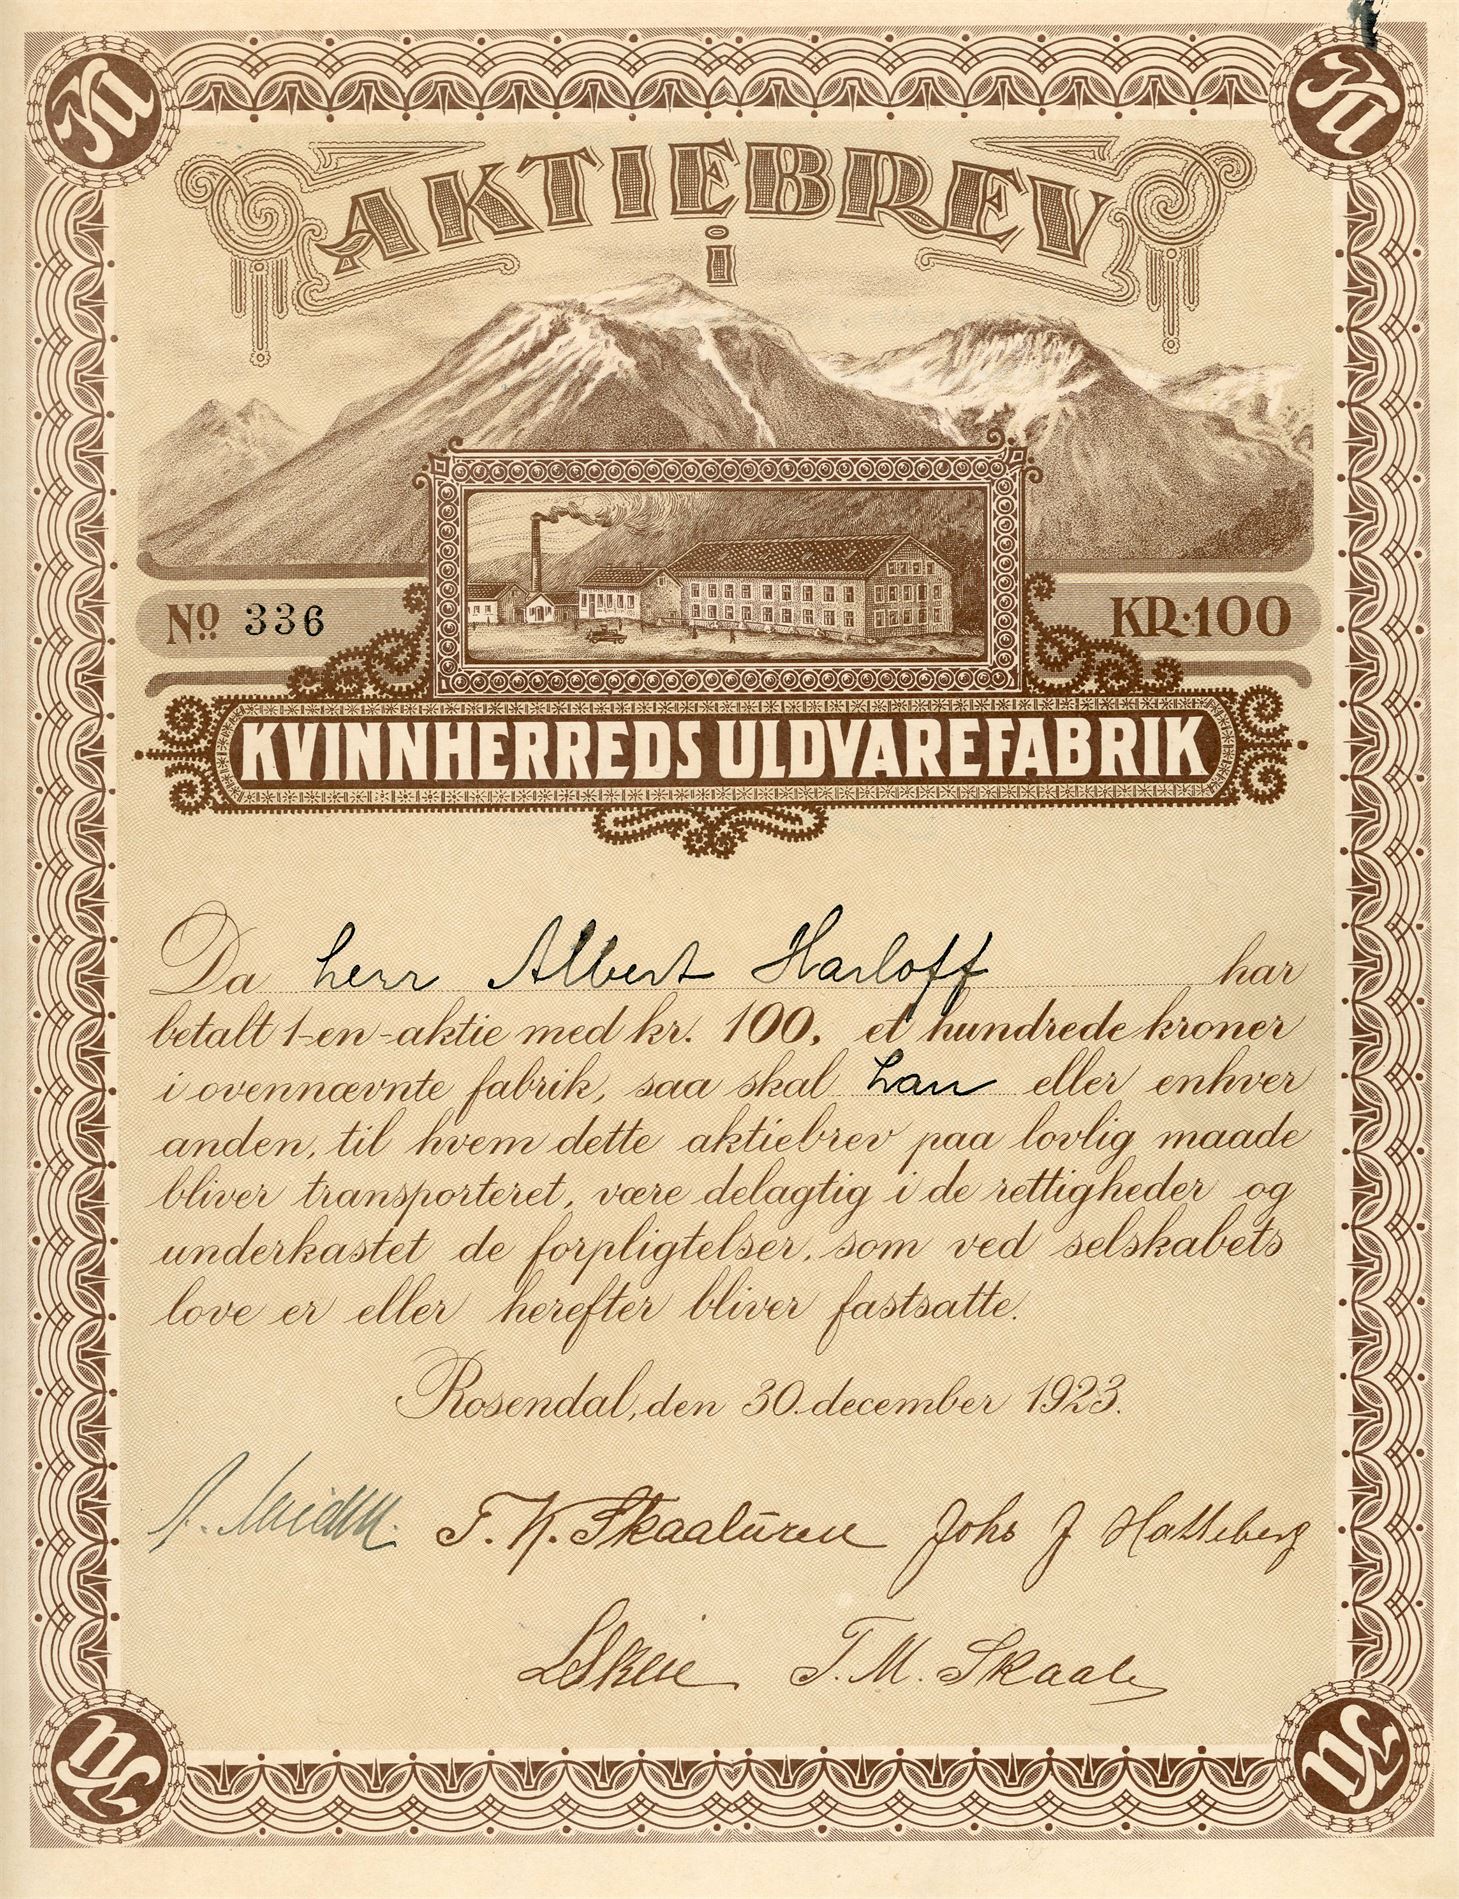 Ku
Ku
AKTIEBREV
i
No. 336
KR. 100
KVINNHERREDS ULDVAREFABRIK
Da herr Albert Harloff har
betalt 1-en-aktie med kr. 100, et hundrede kroner
i ovennævnte fabrik, saa skal han eller enhver
anden, til hvem dette aktiebrev paa lovlig maade
bliver transporteret, være delagtig i de rettigheder og
underkastet de forpligtelser, som ved selskabets
love er eller herefter bliver fastsatte.
Rosendal, den 30. december 1923.
T. K. Skaaluren Johs J Hatteberg
LSkeie T. M. Skaale
Ku
Ku